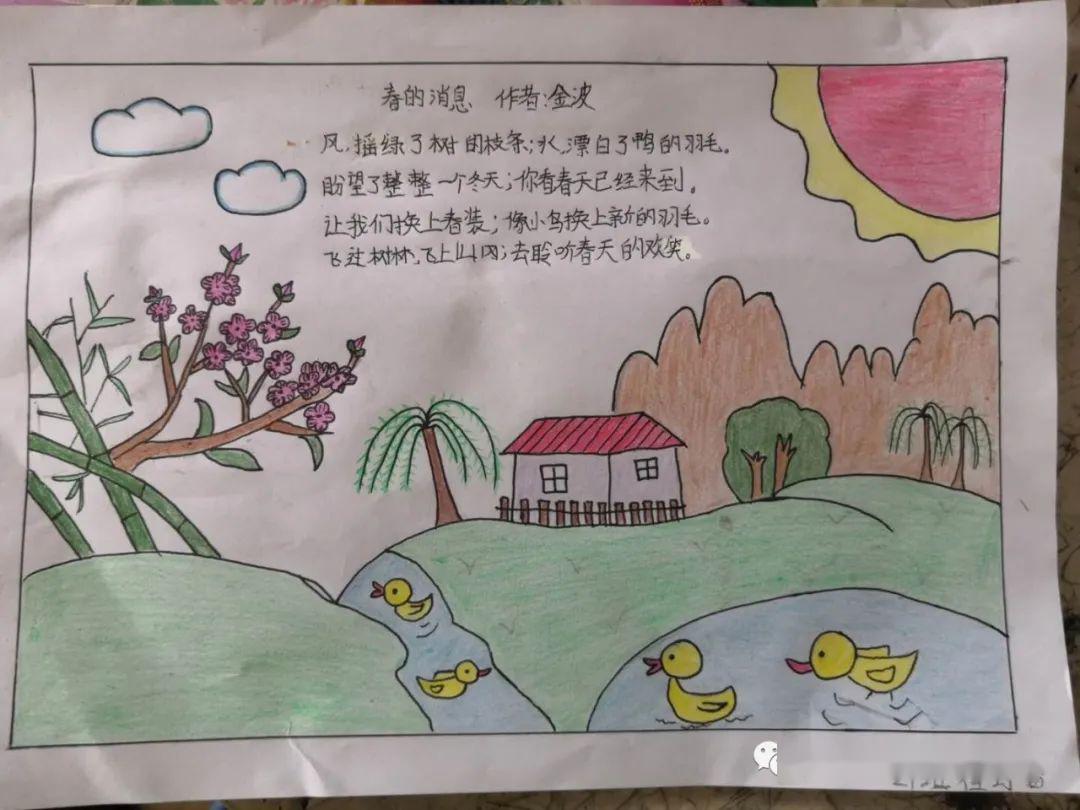 春的消息 作者:金波
风,摇绿了树的枝条;水,漂白了鸭的羽毛。
盼望了整整一个冬天;你看春天已经来到。
让我们换上春装;像小鸟换上新的羽毛。
飞过树林,飞上山冈;去聆听春天的欢笑。